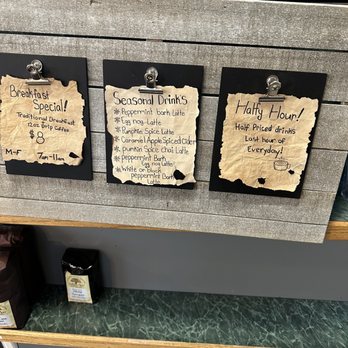 Breakfast
Special!
Traditional Breakfast
12oz Drip Coffee
$8
M-F 7am-11am
Seasonal Drinks
* Peppermint bark Latte
* Egg nog Latte
* Pumpkin Spice Latte
* Caramel Apple Spiced Cider
* pumkin Spice chai Latte
* peppermint Bark
Egg nog Latte
* White or Black
peppermint Bark
Latte
Halfy Hour!
Half Priced drinks
Last hour of
Everyday!